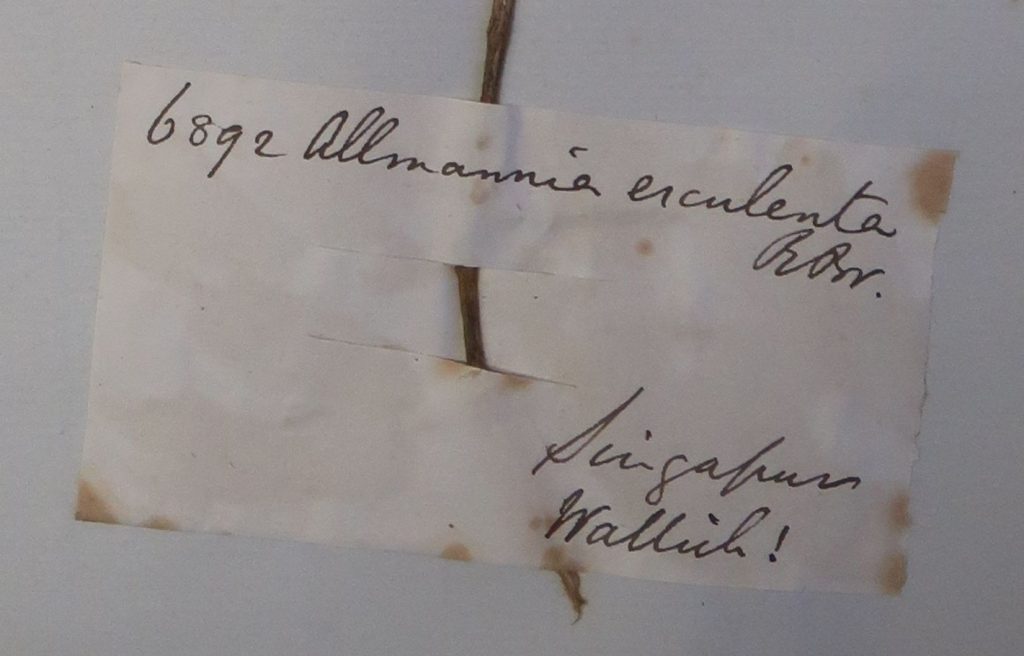 6892 Allmannia esculenta
R Br.
Singapur
Wallich!